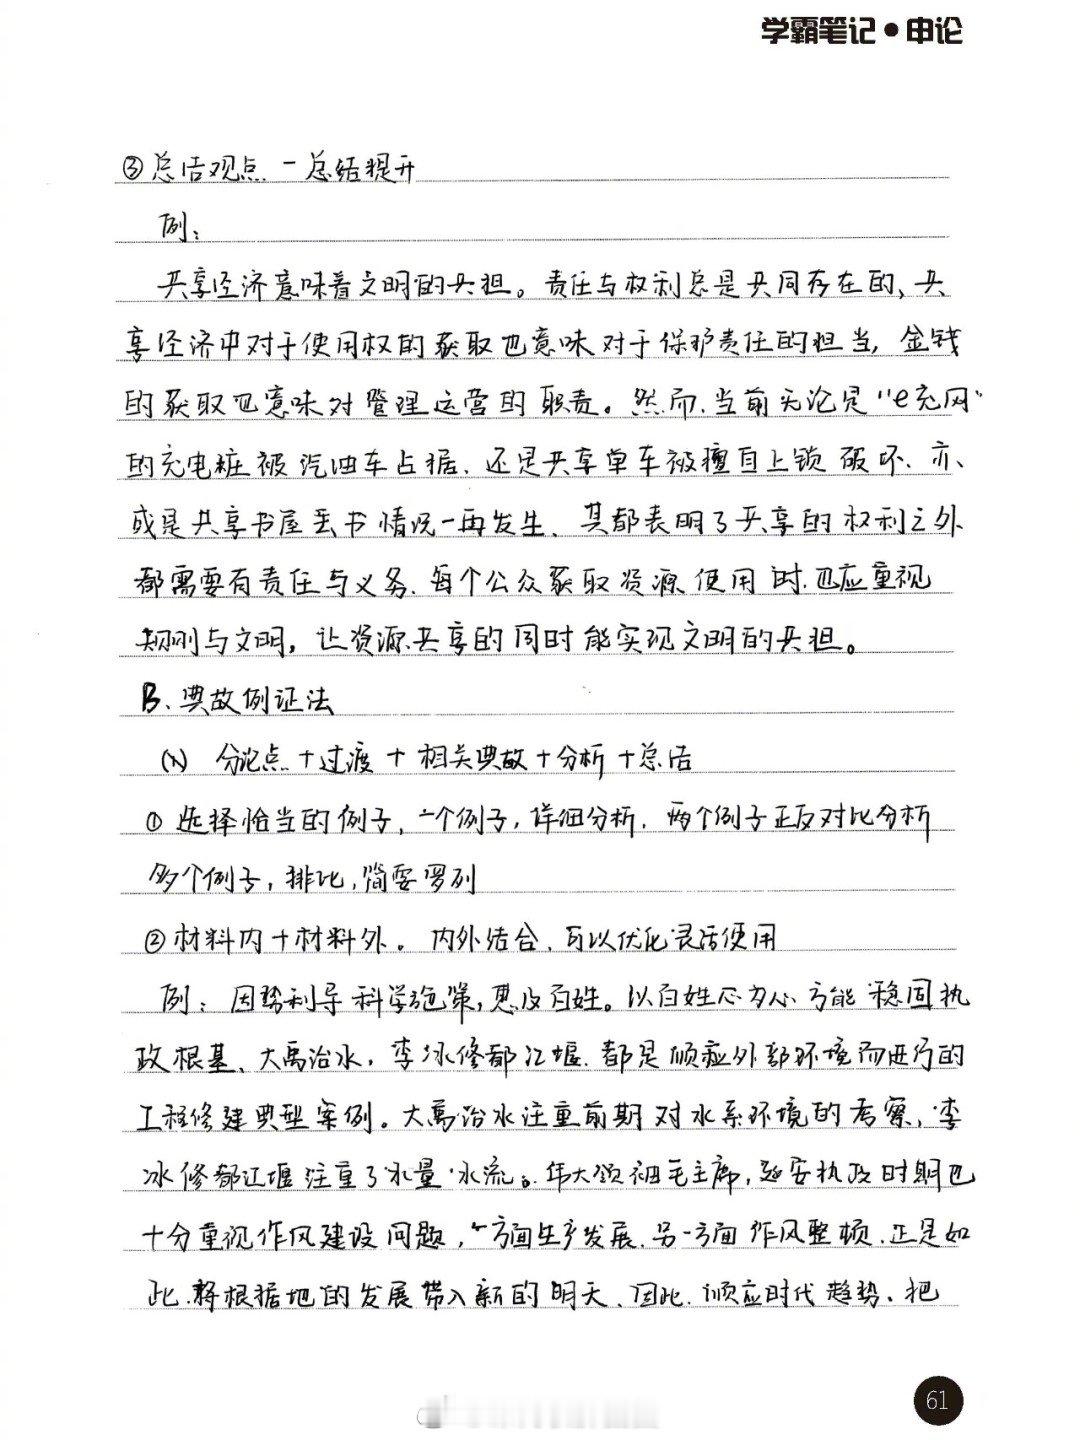 学霸笔记●申论
③总结观点 — 总结提升
例：
共享经济意味着文明的共担。责任与权利总是共同存在的、共
享经济中对于使用权的获取也意味对于保护责任的担当，金钱
的获取也意味对管理运营的职责。然而、当前无论是"e充网"
的充电桩被汽油车占据、还是共享单车被擅自上锁破坏、亦、
或是共享书屋丢书情况一再发生、其都表明了共享的权利之外
都需要有责任与义务、每个公众获取资源使用时、也应重视
规则与文明，让资源共享的同时能实现文明的共担。
B、典故例证法
(1) 分论点+过渡+相关典故+分析+总结
① 选择恰当的例子、一个例子，详细分析、两个例子正反对比分析
多个例子，排比，简要罗列
②材料内+材料外。内外结合、可以优化灵活使用
例：因势利导科学施策，惠及百姓。以百姓心为心方能稳固执
政根基、大禹治水，李冰修都江堰、都是顺应外部环境而进行的
工程修建典型案例。大禹治水注重前期对水系环境的考察，李
冰修都江堰注重了水量水流。伟大领袖毛主席，延安执政时期也
十分重视作风建设问题，一方面生产发展、另一方面作风整顿、正是如
此、将根据地的发展带入新的明天、因此、顺应时代趋势、把
61